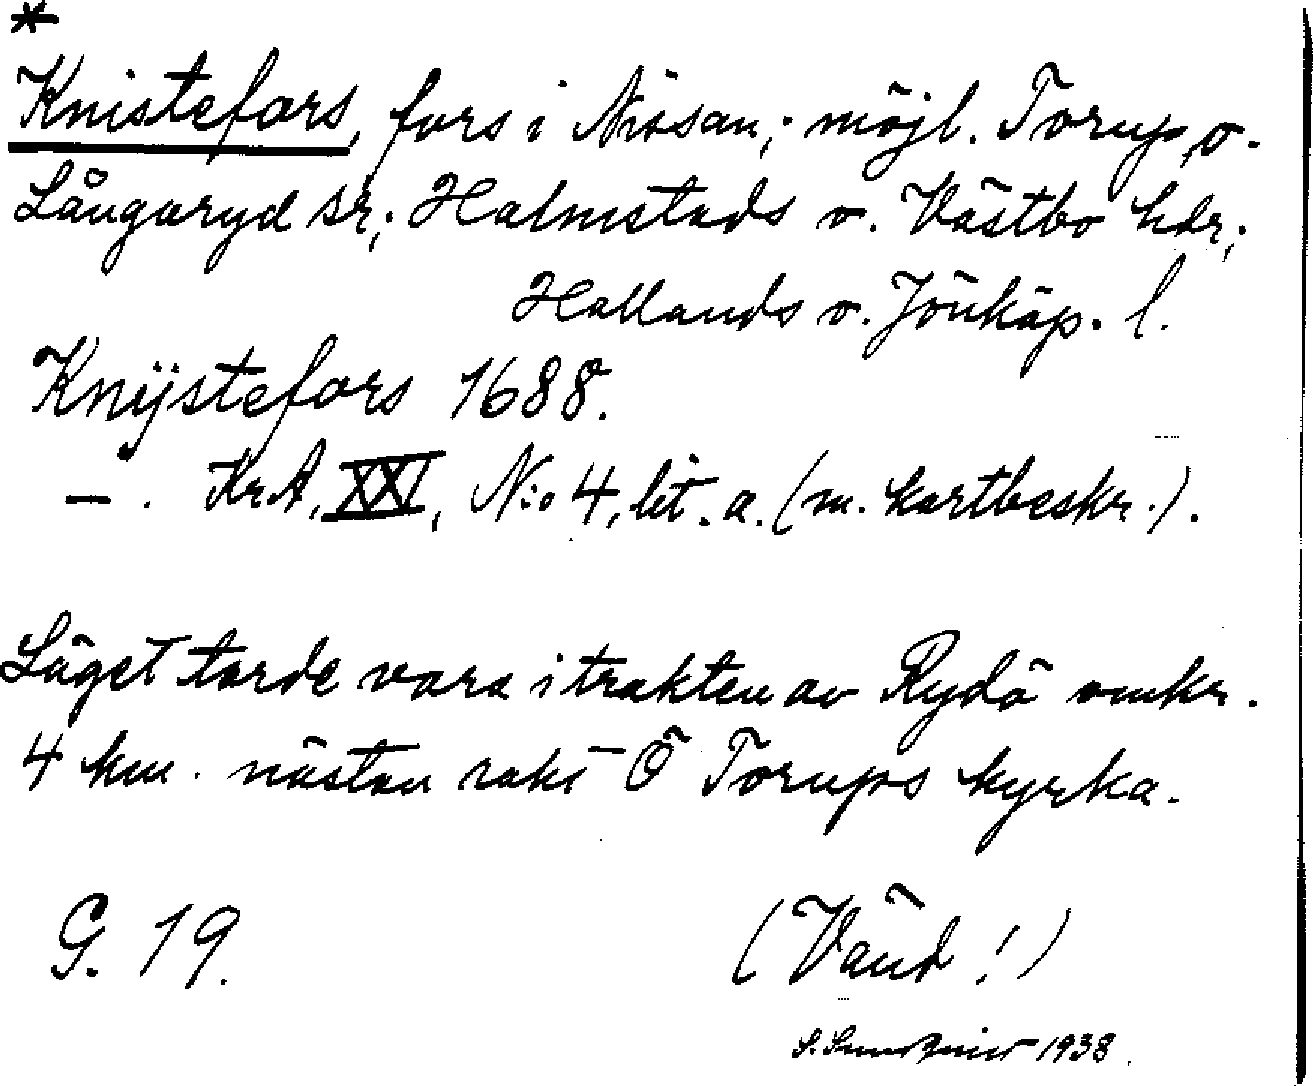 *
Knistefors, fors i Nissan; möjl. Torup o.
Långaryd sr; Halmstads o. Västbo hdr;
Hallands o. Jönköp. l.
Knÿstefors 1688.
— . KrA, XXI, N:o 4, lit. a. (m. kartbeskr.).
Läget torde vara i trakten av Rydö omkr.
4 km. nästan rakt Ö Torups kyrka.
G. 19.
(Vänd!)
S. 1938.